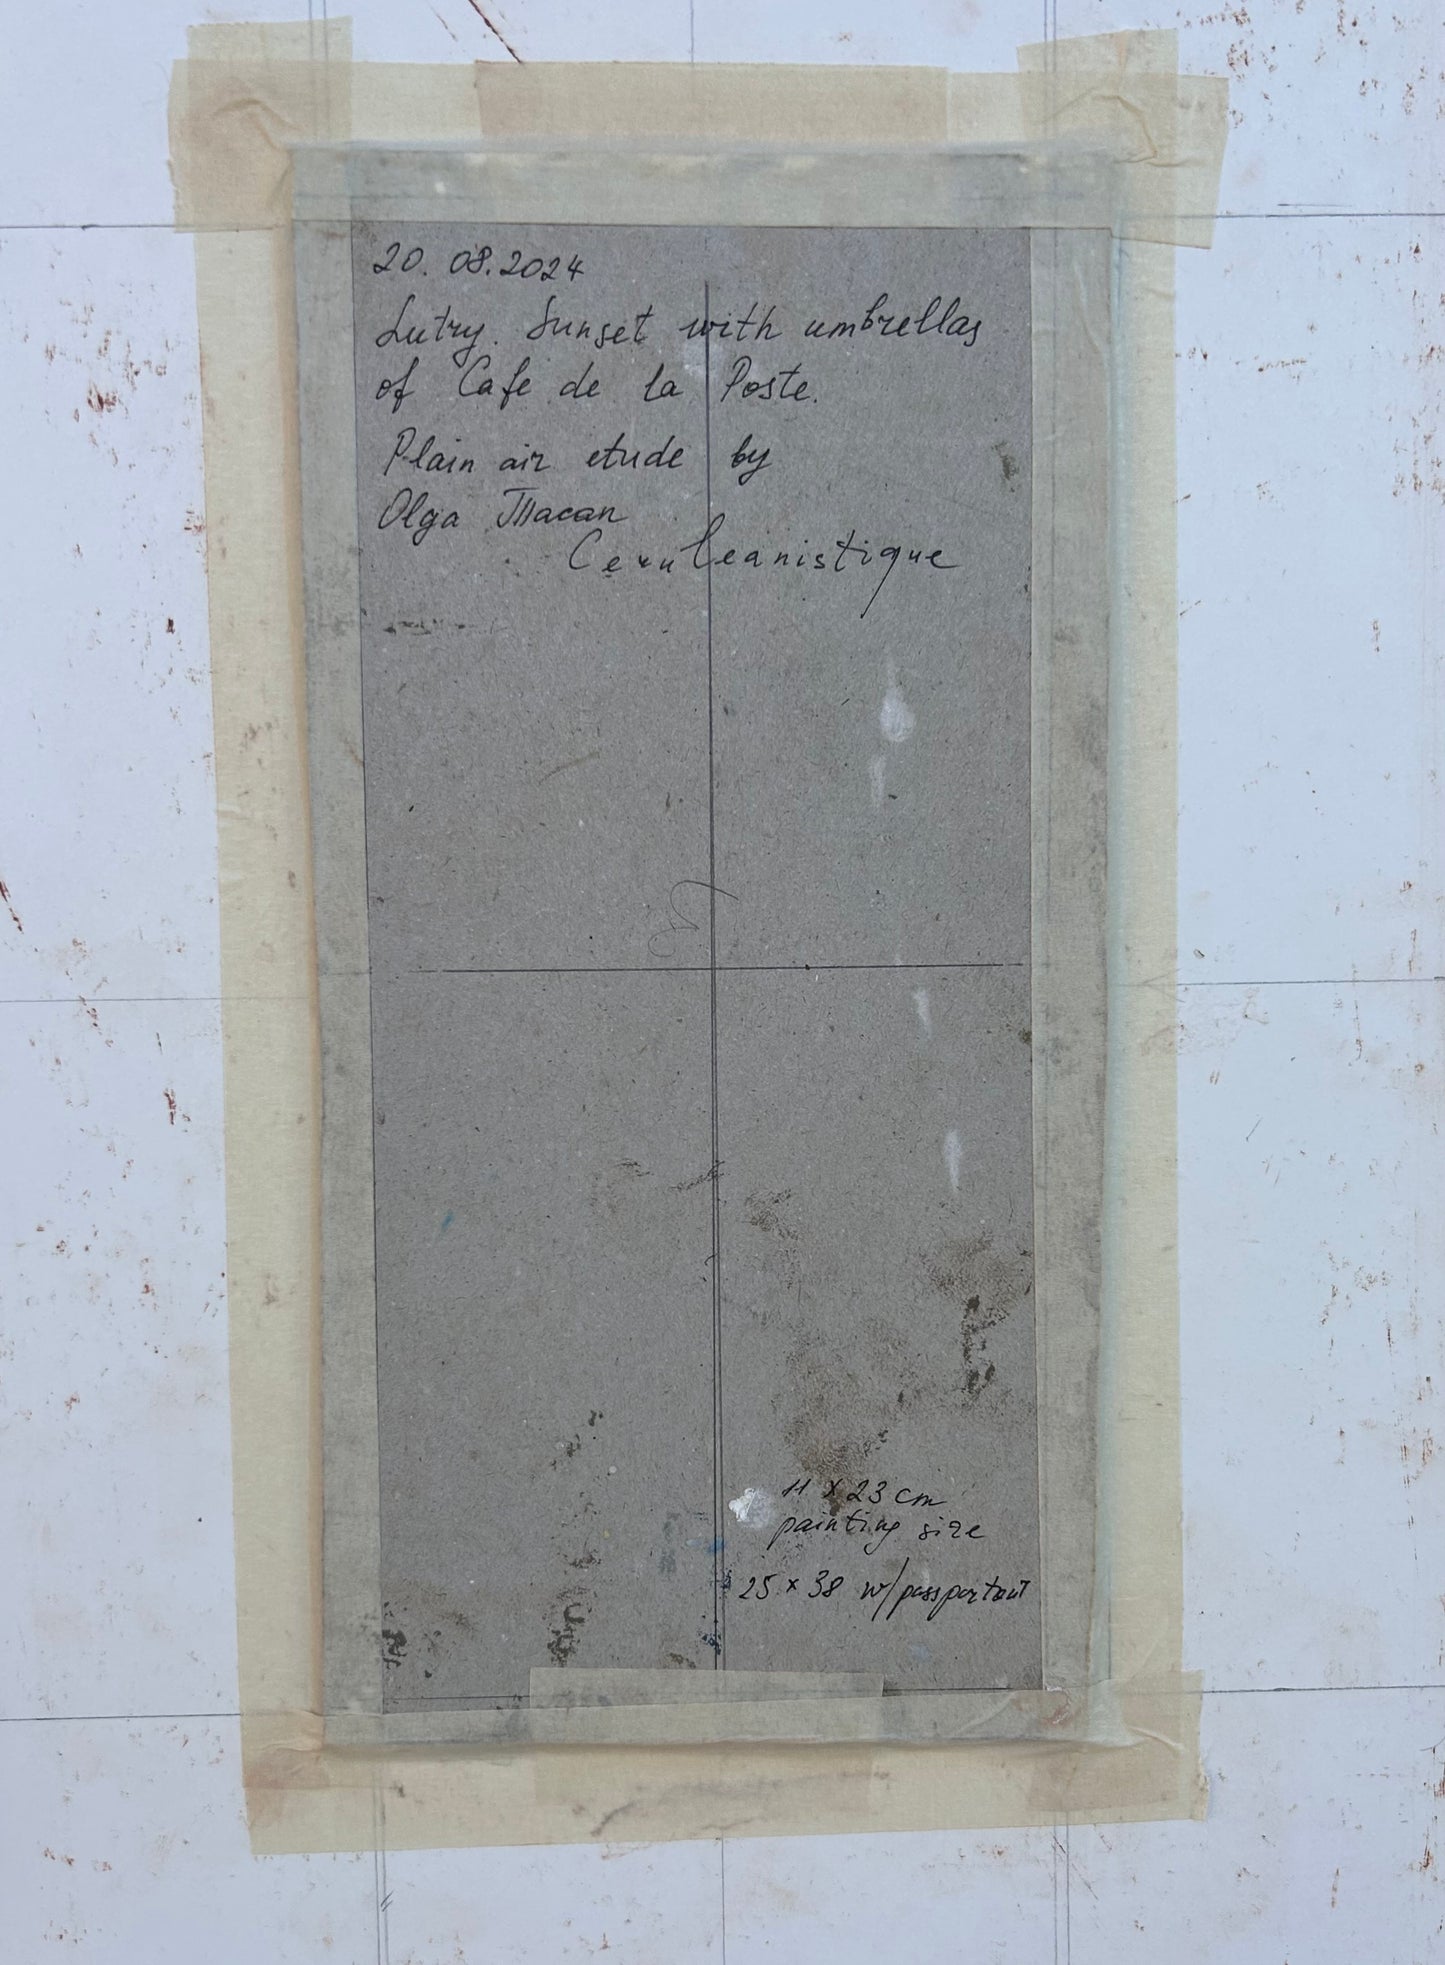 20. 08. 2024
Lutry. Sunset with umbrellas
of Cafe de la Poste.
Plain air etude by
Olga
Ceruleanistique
11 x 23 cm
painting size
25 x 38 w/passportout